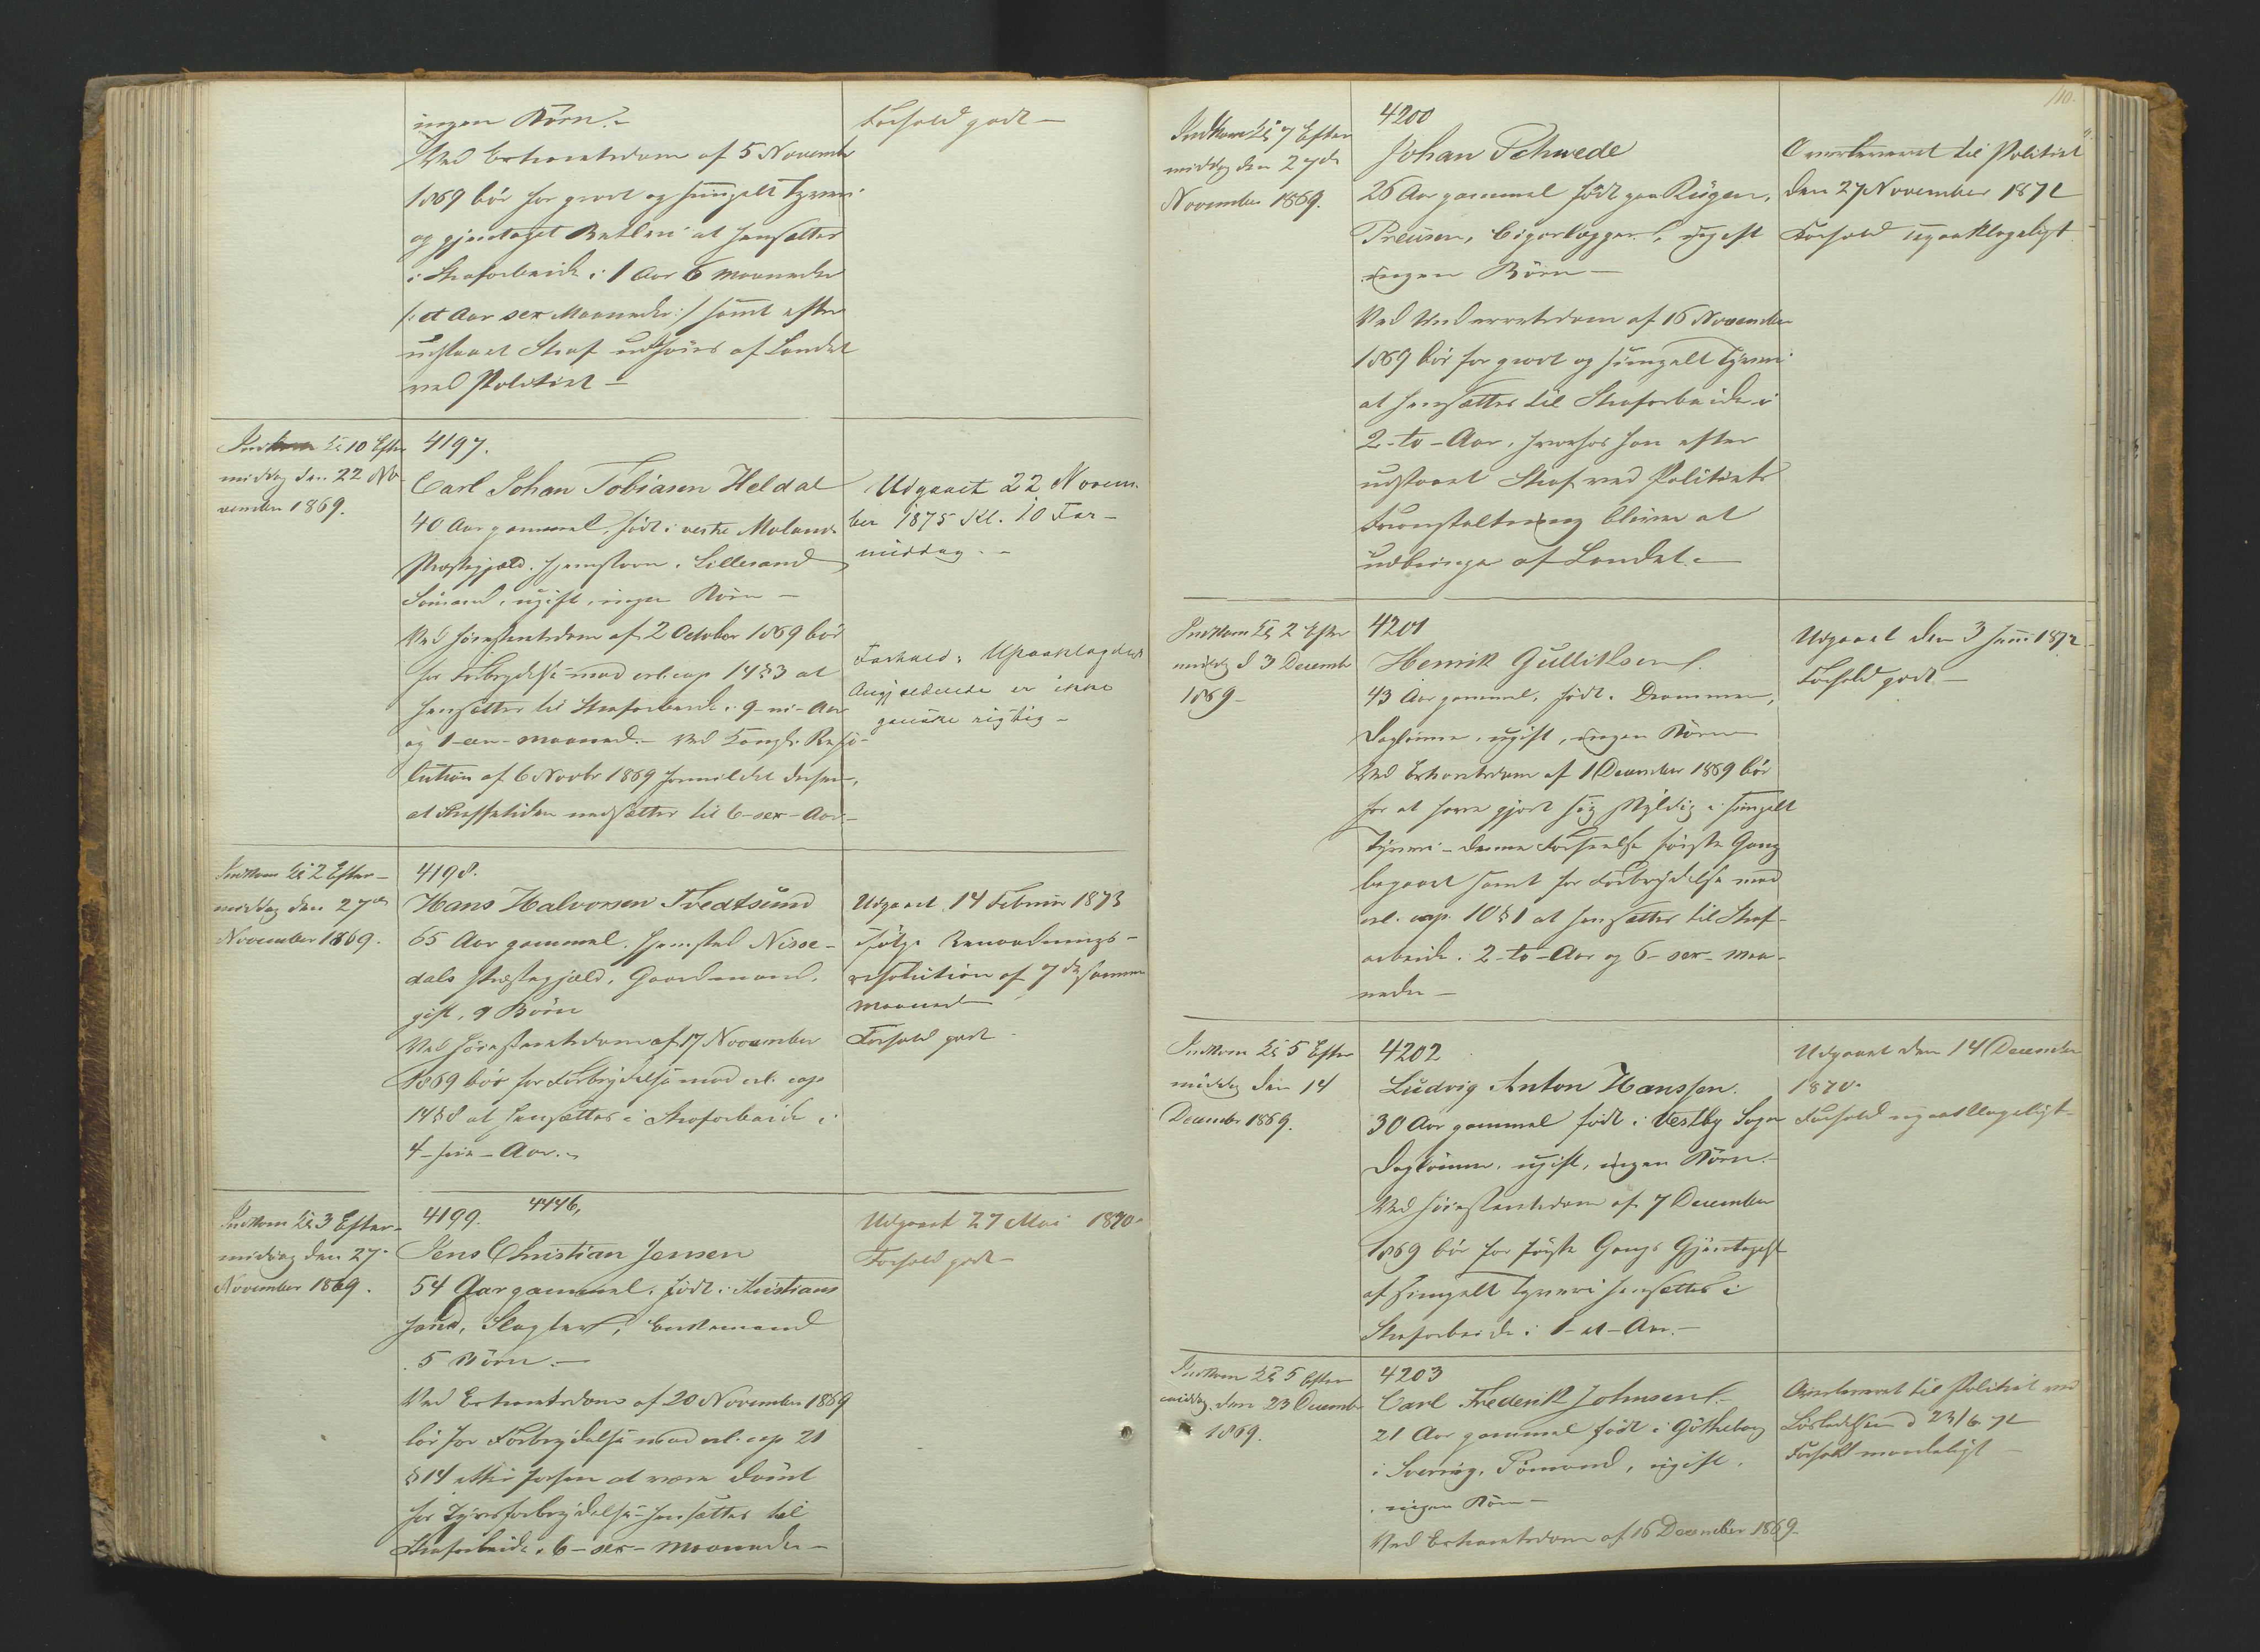 ingen Børn.-
Ved Extraretsdom af 5 Novembr
1869 bør for grovt og simpelt Tyveri
og gjentaget Betleri at hensættes
i Strafarbeide i 1 Aar 6 Maaneder
/: et Aar sex Maaneder :/ samt efter
udstaaet Straf udføres af Landet
ved Politiet -
Forhold godt -
Indkom Kl 10 Efter
middag den 22 No-
vember 1869.
4197.
Carl Johan Tobiasen Heldal
40 Aar gammel, født i vestre Molands
Præstegjæld. Hjemstavn. Lillesand
Sømand, ugift, ingen Børn -
Ved Høiesteretsdom af 2 October 1869 bør
for Forbrydelse mod crl. cap 14 § 3 at
hensættes til Strafarbeide i 9 - ni - Aar
og 1 - een - Maaned. - Ved Kongl. Reso-
lution af 6 Novbr 1869 formildet derhen,
at Straffetiden nedsættes til 6 - sex - Aar. -
Udgaaet 22 Novem-
ber 1875 Kl. 10 For-
middag. -
Forhold: Upaaklageligt
er ikke
ganske rigtig -
Indkom Kl 2 Efter-
middag den 27de
November 1869.
4198.
Hans Halvorsen Tvedtsund
65 Aar gammel. Hjemsted Nisse-
dals Præstegjæld. Gaardmand.
gift, 9 Børn
Ved Høiesteretsdom af 17 November
1869 bør for Forbrydelse mod crl. cap
14 § 8 at hensættes i Strafarbeide i
4 - fire - Aar. -
Udgaaet 14 Februar 1873
ifølge Benaadnings-
resolution af 7de samme
Maaned
Forhold godt -
Indkom Kl 3 Efter-
middag den 27.
November 1869.
4199. 4446,
Jens Christian Jensen
54 Aar gammel. født i Kristians
sand, Slagter, Enkemand
5 Børn. -
Ved Extraretsdom af 20 November 1869
bør for Forbrydelse mod crl. cap 21
§ 14 efter forhen at være dømt
for Tyvsforbrydelse hensættes til
Strafarbeide i 6 - sex - Maaneder -
Udgaaet 27 Mai 1870.
Forhold godt -
110.
Indkom Kl 7 Efter
middag den 27de
November 1869.
4200
Johan Schwede
26 Aar gammel født paa Rügen,
Preusen, Cigarlægger, ugift
ingen Børn -
Ved Underretsdom af 16 November
1869 bør for grovt og simpelt Tyveri
at hensættes til Strafarbeide i
2 - to - Aar, hvorhos han efter
udstaaet Straf ved Politiets
Foranstaltning bliver at
udbringe af Landet. -
Overleveret til Politiet
den 27 November 1871
Forhold upaaklageligt
Indkom Kl 2 Efter
middag d 3 Decembr
1869 -
4201
Henrik Gulliksen.
43 Aar gammel, født i Drammen,
Dagleier. ugift, ingen Børn
Ved Extraretsdom af 1 December 1869 bør
for at have gjort sig skyldig i simpelt
Tyveri - denne Forseelse første Gang
begaaet samt for Forbrydelse mod
crl. cap. 10 § 1 at hensættes til Straf-
arbeide i 2 - to - Aar og 6 - sex - Maa-
neder -
Udgaaet den 3 Juni 1872
Forhold godt -
Indkom Kl 5 Efter
middag den 14
Decembr 1869.
4202
Ludvig Anton Hanssen.
30 Aar gammel født i Vestby Sogn
Dagleier. ugift, ingen Børn. -
Ved Høiesteretsdom af 7 December
1869 bør for første Gangs Gjentagelse
af simpelt Tyveri hensættes i
Strafarbeide i 1 - et - Aar. -
Udgaaet den 14 December
1870.
Forhold upaaklageligt -
Indkom Kl 5 Efter
middag. den 23 Decembr
1869.
4203
Carl Frederik Johnsen.
21 Aar gammel født i Gøtheborg
i Sverrig. Sømand, ugift.
ingen Børn -
Ved Extraretsdom af 16 December 1869.
Overleveret til Politiet ved
Løsladelsen d 23/6 71
Forhold maadeligt -